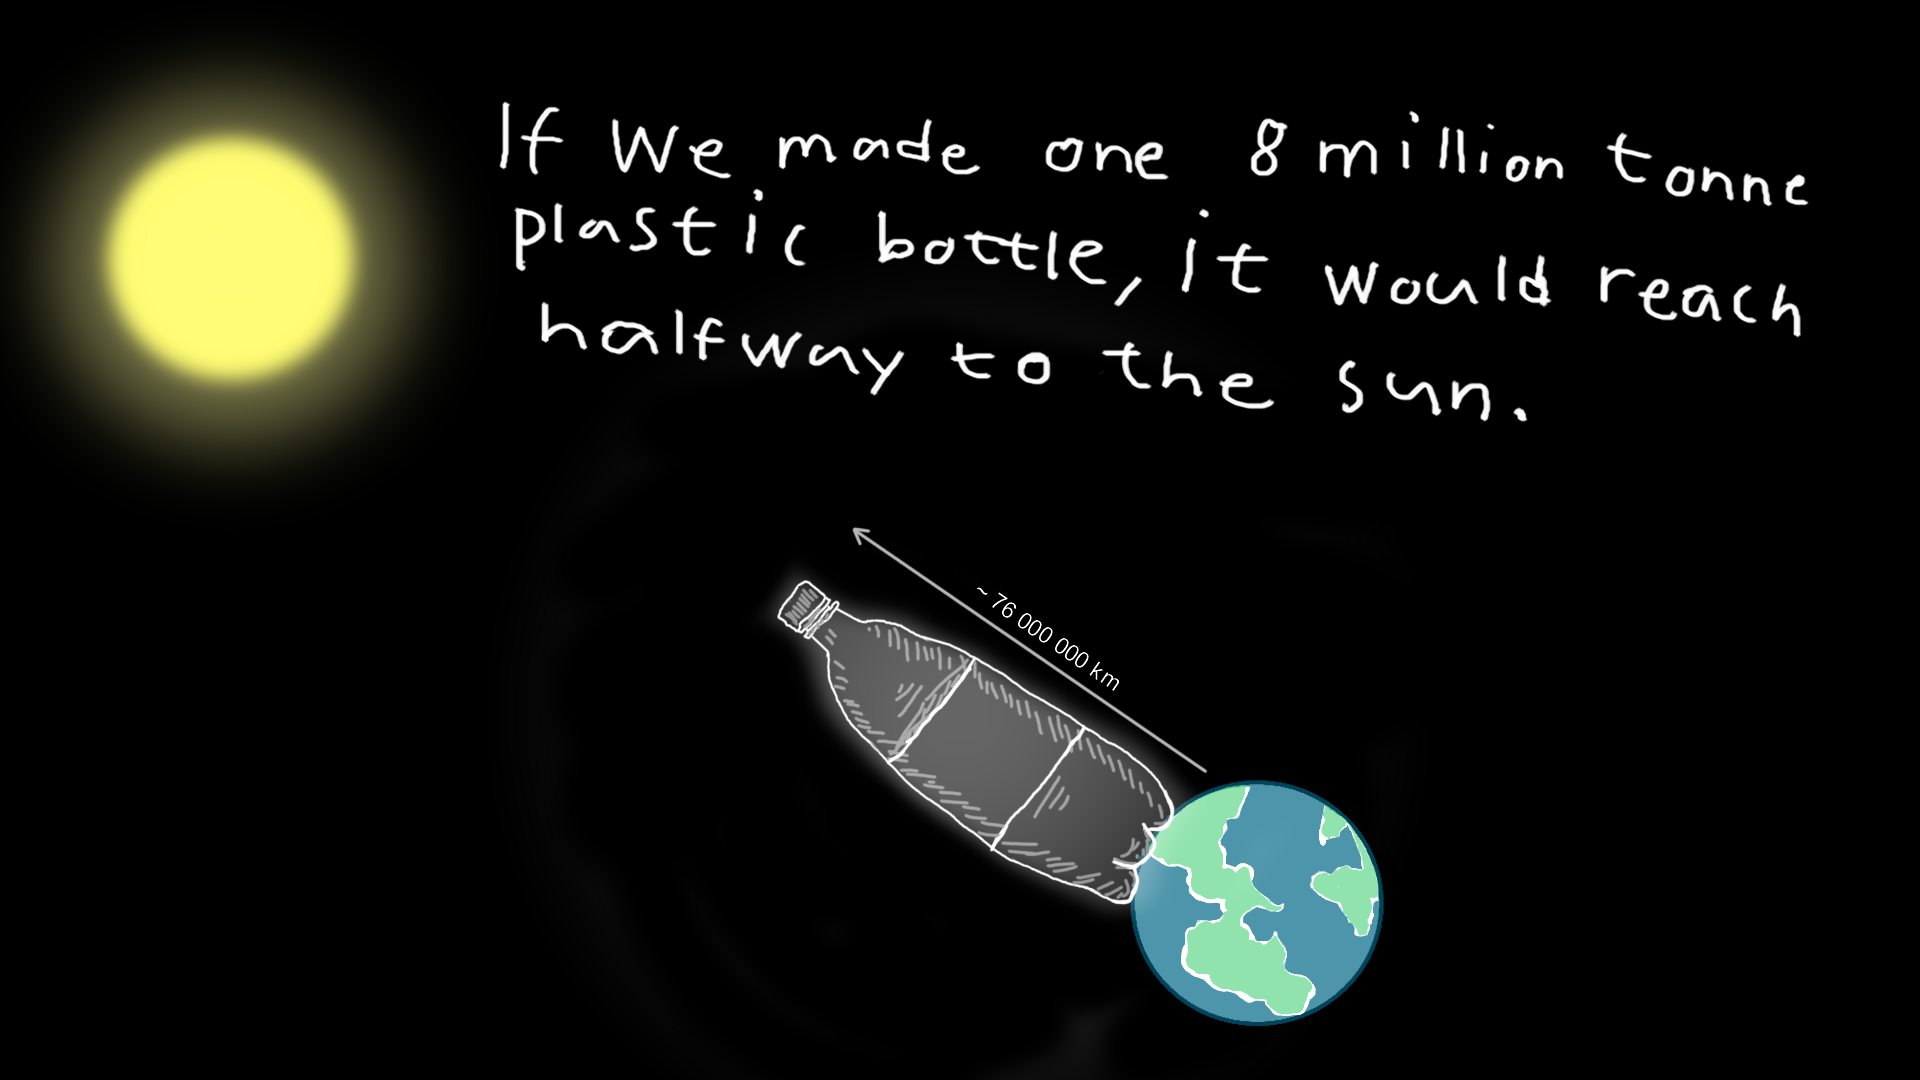 If We made one 8 million tonne
plastic bottle, it would reach
halfway to the sun.
~ 76 000 000 km